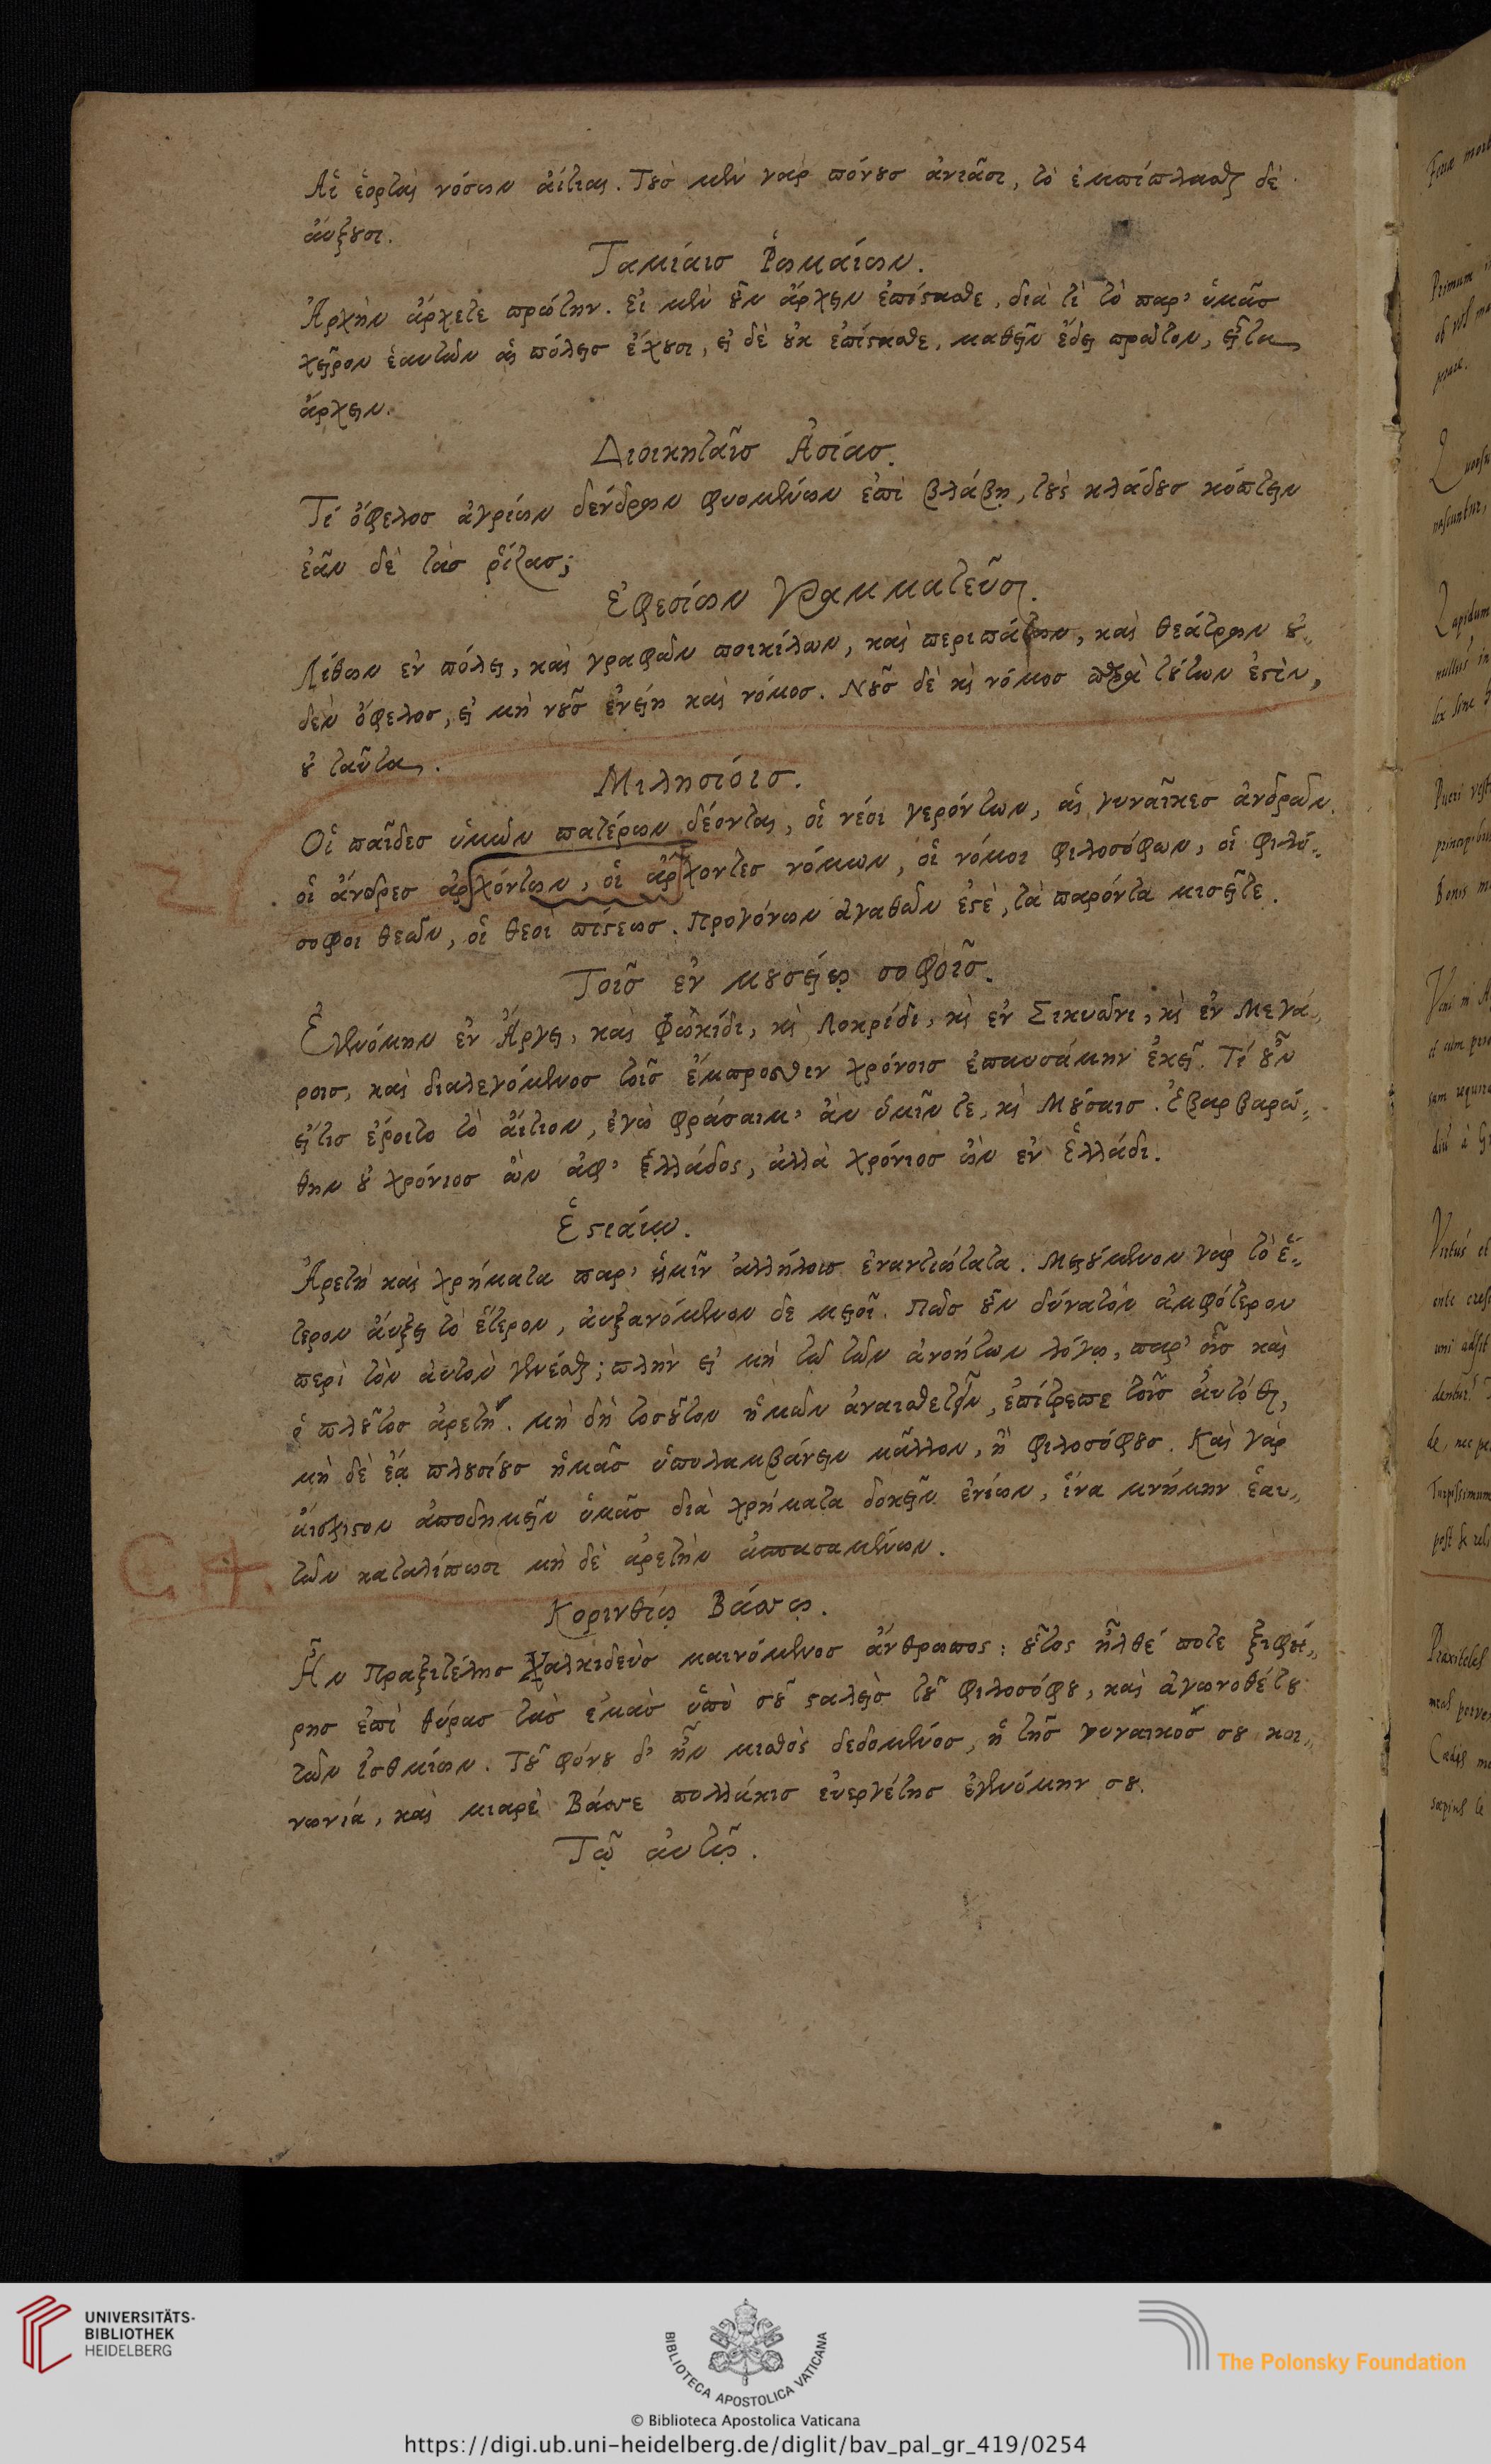 Αἱ ἑορταὶ νόσων ἀίτιαι. Τοὺσ μὲν γὰρ πόνουσ ἀνιᾶσι, τὸ ἐμπίπλασθαι δὲ
ἀύξουσι.
Ταμίαισ Ῥωμαίων.
Ἀρχὴν ἄρχετε πρώτην. Εἰ μὲν οὖν ἄρχειν ἐπίστασθε, διὰ τὶ τὸ παρ' ὑμᾶσ
χεῖρον ἑαυτῶν αἱ πόλεισ ἔχουσι, εἰ δὲ οὐκ ἐπίστασθε, μαθεῖν ἔδει πρῶτον, εἶτα
ἄρχειν.
Διοικηταῖσ Ἀσίασ.
Τί ὄφελοσ ἀγρίων δένδρων φυομένων ἐπὶ βλάβῃ, τοὺς κλάδουσ κόπτειν
ἐᾶν δὲ τὰσ ῥίζασ;
Ἐφεσίων γραμματεῦσι.
Λίθων ἐν πόλει, καὶ γραφῶν ποικίλων, καὶ περιπάτων, καὶ θεάτρων οὐ-
δὲν ὄφελοσ, εἰ μὴ νοῦσ ἐνείη καὶ νόμοσ. Νοῦσ δὲ καὶ νόμοσ περὶ τούτων ἐστὶν,
οὐ ταῦτα.
Μιλησίοισ.
Οἱ παῖδεσ ὑμῶν πατέρων δέονται, οἱ νέοι γερόντων, αἱ γυναῖκεσ ἀνδρῶν.
οἱ ἄνδρεσ ἀρχόντων, οἱ ἄρχοντεσ νόμων, οἱ νόμοι φιλοσόφων, οἱ φιλό-
σοφοι θεῶν, οἱ θεοὶ πίστεωσ. Προγόνων ἀγαθῶν ἐστὲ, τὰ παρόντα μισεῖτε.
Τοῖσ ἐν μουσείῳ σοφοῖσ.
Ἐγενόμην ἐν Ἄργει, καὶ Φωκίδι, καὶ Λοκρίδι, καὶ ἐν Σικυῶνι, καὶ ἐν Μεγά-
ροισ, καὶ διαλεγόμενοσ τοῖσ ἔμπροσθεν χρόνοισ ἐπαυσάμην ἐκεῖ. Τί οὖν
εἴτισ ἔροιτο τὸ ἀίτιον, ἐγὼ φράσαιμ' ἂν ὑμῖν τε, καὶ Μούσαισ. Ἐβαρβαρώ-
θην οὐ χρόνιοσ ὢν ἀφ' Ἑλλάδος, ἀλλὰ χρόνιοσ ὢν ἐν Ἑλλάδι.
Ἑστιαίῳ.
Ἀρετὴ καὶ χρήματα παρ' ἡμῖν ἀλλήλοισ ἐναντιώτατα. Μειούμενον γὰρ τὸ ἕ-
τερον ἀύξει τὸ ἕτερον, ἀυξανόμενον δε μειοῖ. Πῶσ οὖν δύνατον ἀμφότερον
περὶ τὸν ἀυτον γενέσθαι; πλὴν εἰ μὴ τῶ τῶν ἀνοήτων λόγῳ, παρ' οἷσ καὶ
ὁ πλοῦτοσ ἀρετή. μὴ δὴ τοσοῦτον ἡμῶν ἀναισθετεῖν, ἐπίτρεπε τοῖσ ἀυτόθι,
μὴ δὲ ἔα πλουσίουσ ἡμᾶσ ὑπολαμβάνειν μᾶλλον, ἢ φιλοσόφουσ. Καὶ γὰρ
ἀίσχιστον ἀποδημεῖν ὑμᾶσ διὰ χρήματα δοκεῖν ἐνίων, ἵνα μνήμην ἑαυ-
τῶν καταλίπωσι μὴ δὲ ἀρετὴν ἀσπασαμένων.
Κορινθίῳ Βάσσῳ.
Ἦν Πραξιτέλησ Χαλκιδεὺσ μαινόμενοσ ἄνθρωποσ: οὗτος ἦλθέ ποτε ξιφή-
ρησ ἐπὶ θύρασ τὰσ ἐμὰσ ὑπὸ σοῦ σταλεὶσ τοῦ φιλοσόφου, καὶ ἀγωνοθέτου
τῶν ἰσθμίων. Τοῦ φόνου δ' ἦν μισθὸς δεδομένοσ, ἡ τῆσ γυναικόσ σου κοι-
νωνιά, καὶ μιαρὲ Βάσσε πολλάκισ ἐυεργέτησ ἐγενόμην σου.
Τῷ ἀυτῷ.
UNIVERSITÄTS-
BIBLIOTHEK
HEIDELBERG
BIBLIOTECA APOSTOLICA VATICANA
The Polonsky Foundation
© Biblioteca Apostolica Vaticana
https://digi.ub.uni-heidelberg.de/diglit/bav_pal_gr_419/0254